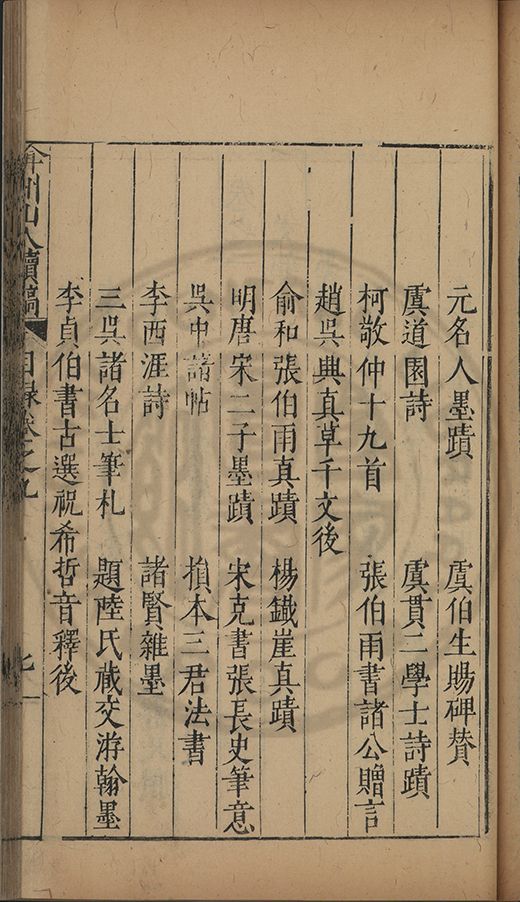 元名人墨蹟　虞伯生賜碑贊
虞道園詩　虞貫二學士詩蹟
柯敬仲十九首　張伯雨書諸公贈言
趙吳興真草千文後
俞和張伯雨真蹟　楊鐵崖真蹟
明唐宋二子墨蹟　宋克書張長史筆意
吳中諸帖　損本三君法書
李西涯詩　諸賢雜墨
三吳諸名士筆札　題陸氏藏交游翰墨
李貞伯書古選祝希哲音釋後
弇州山人續稿　目録卷之九　七